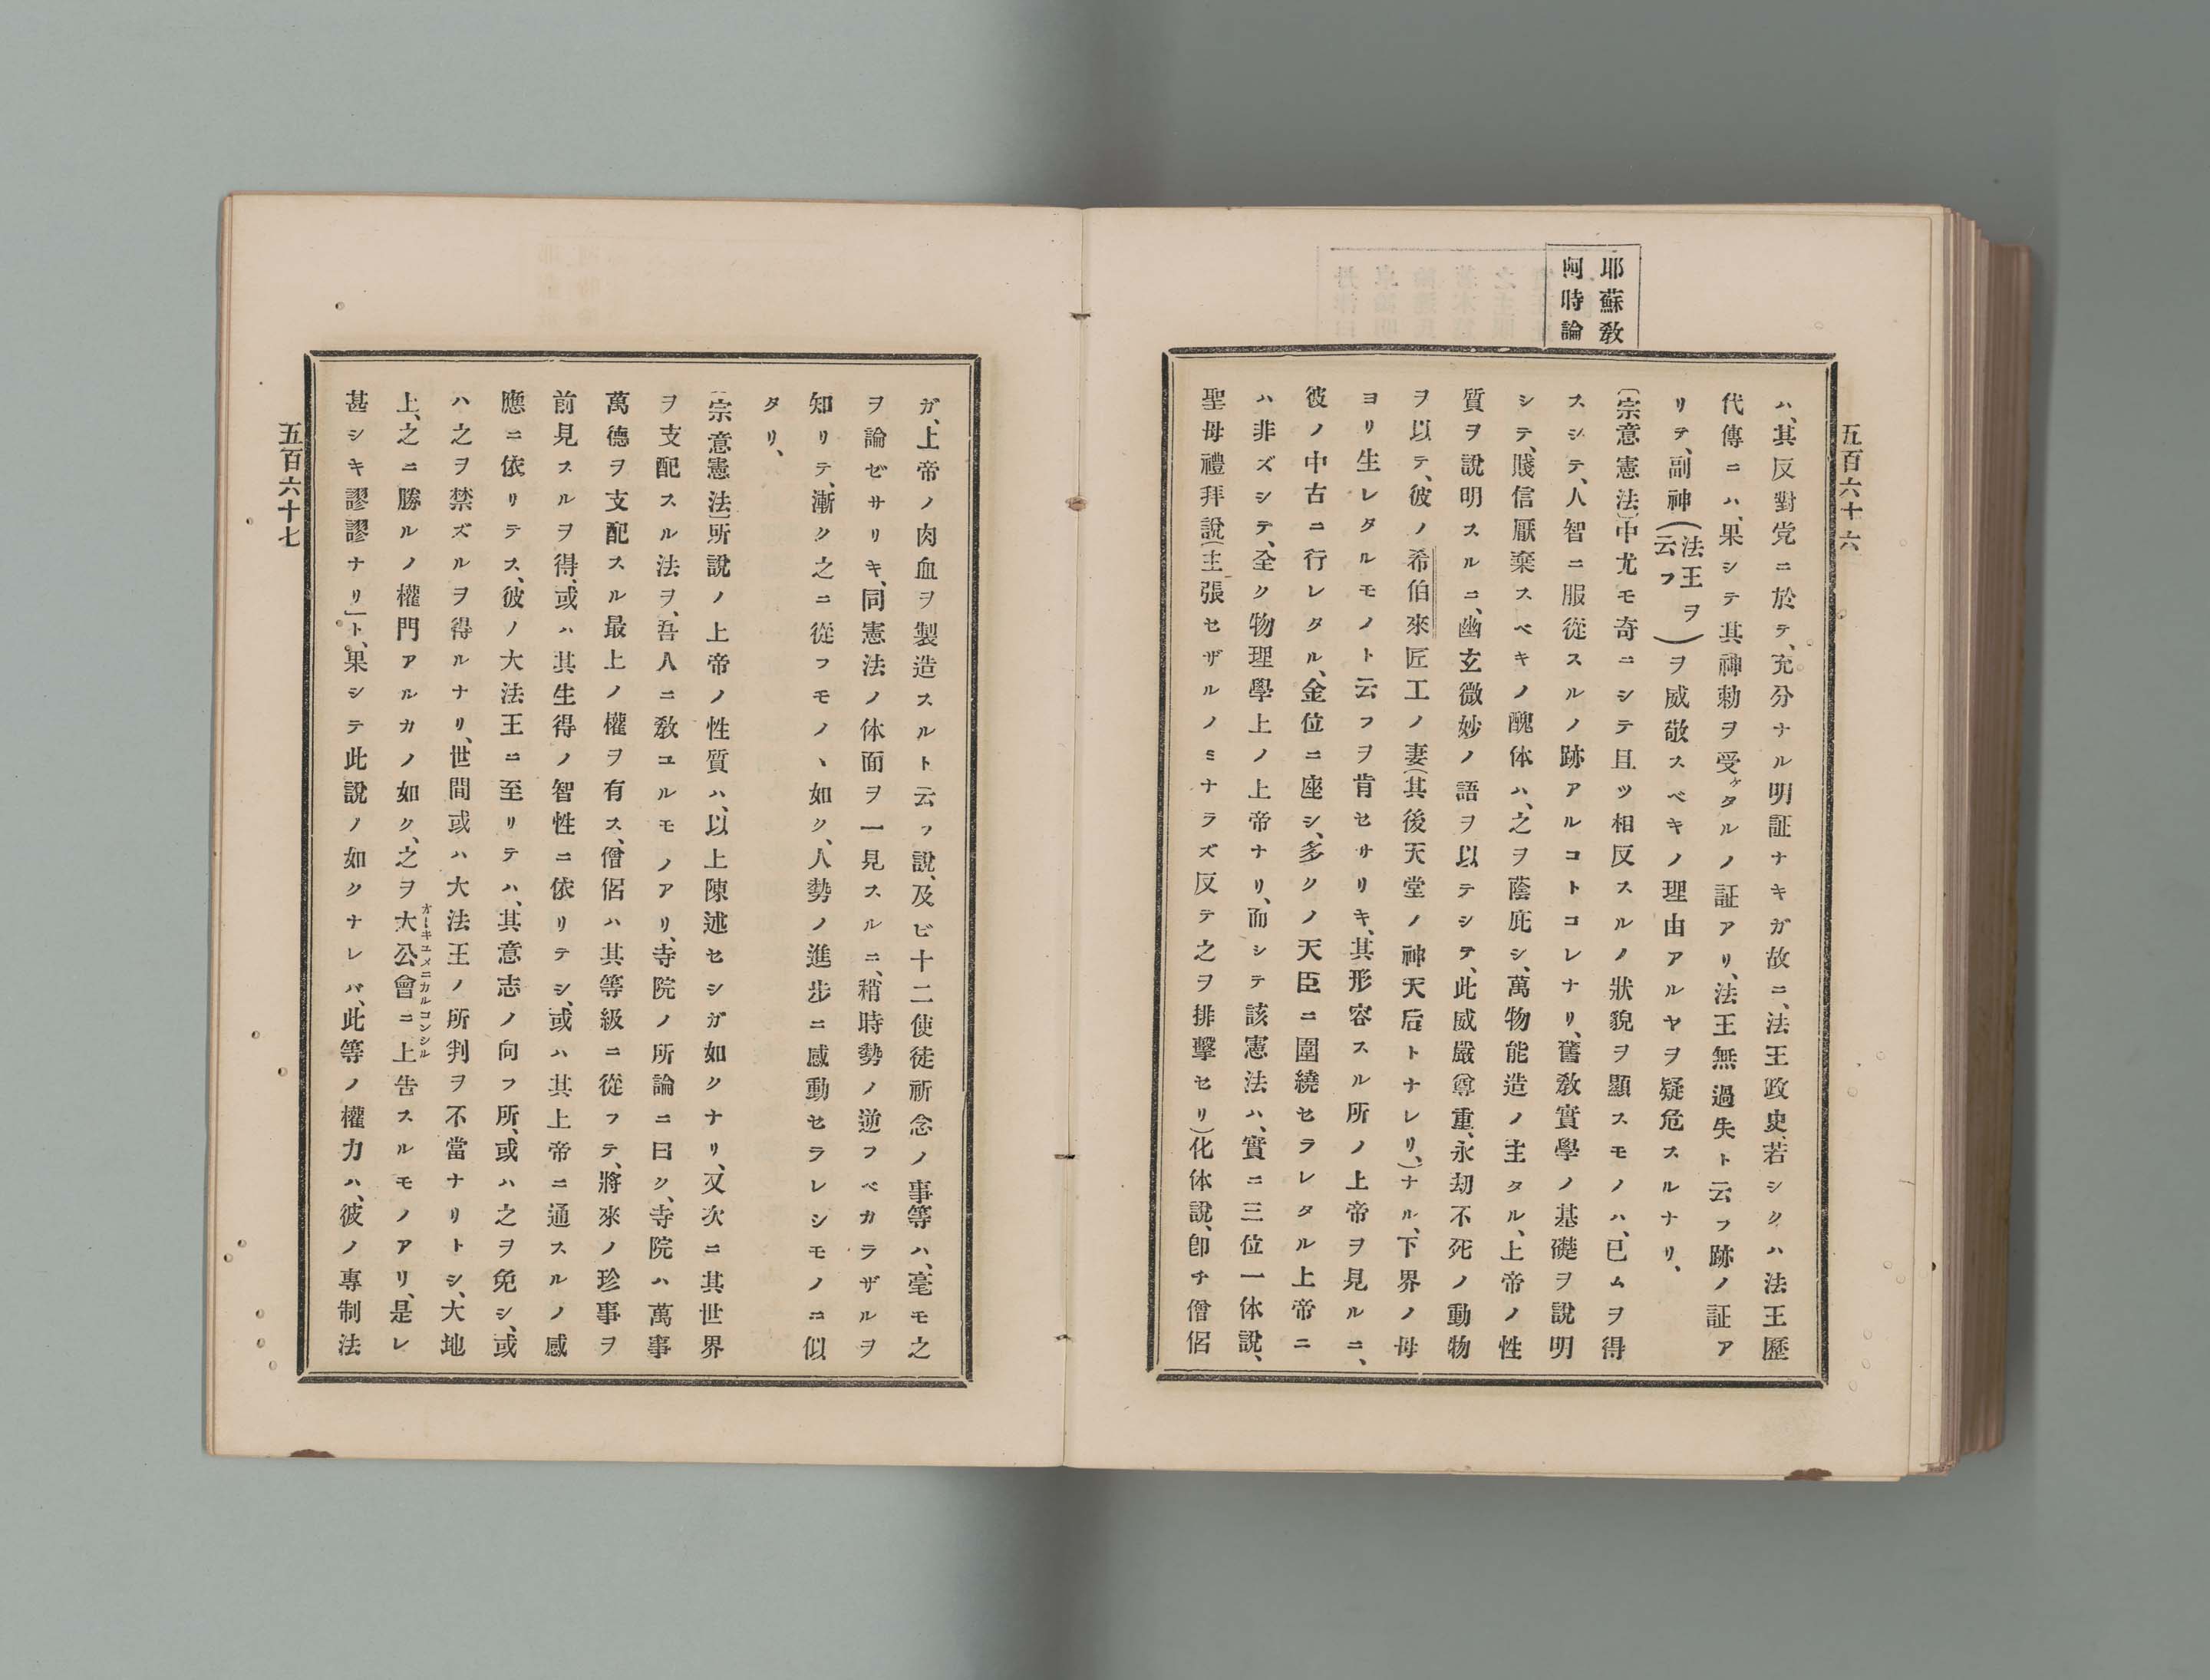 五百六十六
耶蘇教
阿時論
ハ、其反對党ニ於テ、充分ナル明証ナキガ故ニ、法王政史、若シクハ法王歴
代傳ニハ、果シテ其神勅ヲ受ケタルノ証アリ、法王無過失ト云フ跡ノ証ア
リテ、副神(法王ヲ云フ)ヲ威敬スベキノ理由アルヤヲ疑危スルナリ、
〔宗意憲法〕中尤モ奇ニシテ且ツ相反スルノ狀貌ヲ顯スモノハ、已ムヲ得
スシテ、人智ニ服從スルノ跡アルコトコレナリ、舊教實學ノ基礎ヲ說明
シテ、賤信厭棄スベキノ醜体ハ、之ヲ蔭庇シ、萬物能造ノ主タル、上帝ノ性
質ヲ說明スルニ、幽玄微妙ノ語ヲ以テシテ、此威嚴尊重、永劫不死ノ動物
ヲ以テ、彼ノ希伯來匠工ノ妻(其後天堂ノ神天后トナレリ、)ナル、下界ノ母
ヨリ生レタルモノト云フヲ肯セサリキ、其形容スル所ノ上帝ヲ見ルニ、
彼ノ中古ニ行レタル、金位ニ座シ、多クノ天臣ニ圍繞セラレタル上帝ニ
ハ非ズシテ、全ク物理學上ノ上帝ナリ、而シテ該憲法ハ、實ニ三位一体說、
聖母禮拜說(主張セザルノミナラズ反テ之ヲ排擊セリ)化体說、卽チ僧侶
ガ、上帝ノ肉血ヲ製造スルト云フ說、及ビ十二使徒祈念ノ事等ハ、毫モ之
ヲ論ゼサリキ、同憲法ノ体面ヲ一見スルニ、稍時勢ノ逆フベカラザルヲ
知リテ、漸ク之ニ從フモノヽ如ク、人勢ノ進步ニ感動セラレシモノニ似
タリ、
〔宗意憲法〕所說ノ上帝ノ性質ハ、以上陳述セシガ如クナリ、又次ニ其世界
ヲ支配スル法ヲ、吾人ニ教ユルモノアリ、寺院ノ所論ニ曰ク、寺院ハ萬事
萬德ヲ支配スル最上ノ權ヲ有ス、僧侶ハ其等級ニ從フテ、將來ノ珍事ヲ
前見スルヲ得、或ハ其生得ノ智性ニ依リテシ、或ハ其上帝ニ通スルノ感
應ニ依リテス、彼ノ大法王ニ至リテハ、其意志ノ向フ所、或ハ之ヲ免シ、或
ハ之ヲ禁ズルヲ得ルナリ、世間或ハ大法王ノ所判ヲ不當ナリトシ、大地
上、之ニ勝ルノ權門アルカノ如ク、之ヲ大公會ニ上告スルモノアリ、是レ
オーキユメニカルコンシル
甚シキ謬謬ナリ」ト、果シテ此說ノ如クナレバ、此等ノ權力ハ、彼ノ專制法
五百六十七